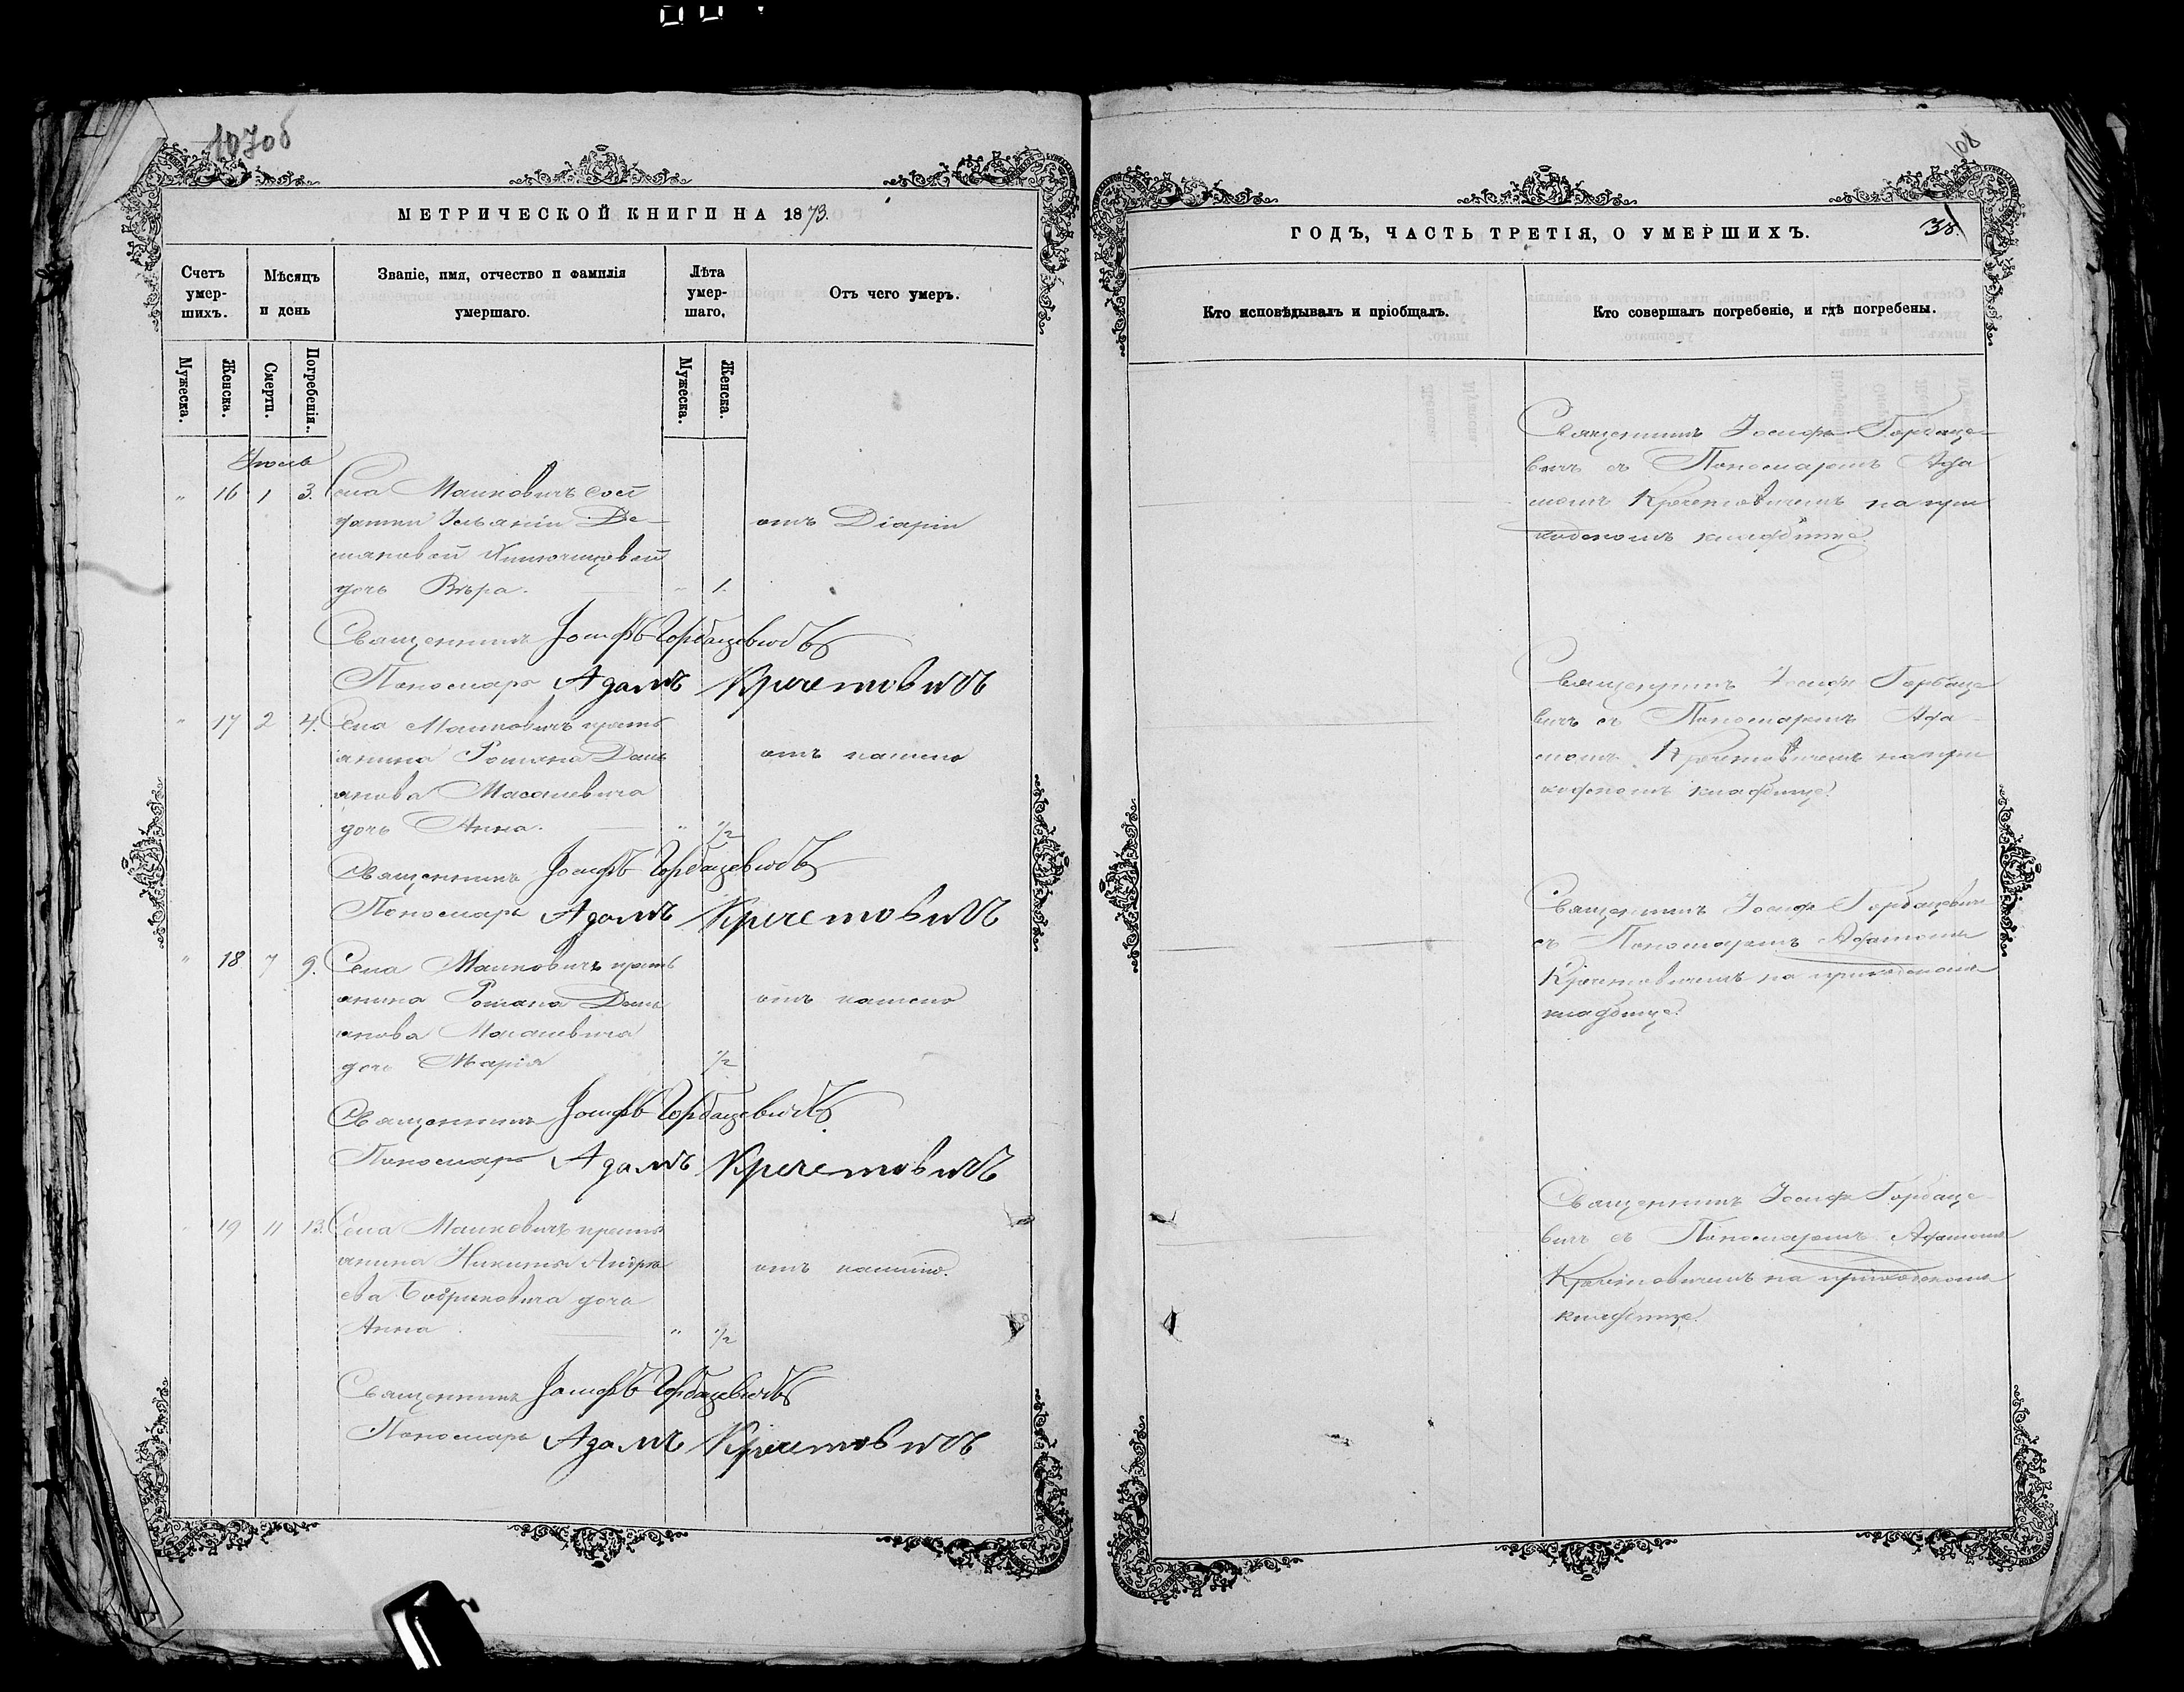 107об
МЕТРИЧЕСКОЙ КНИГИ НА 1873.
Счетъ умершихъ.
Мѣсяцъ и день
Званіе, имя, отчество и фамилія умершаго.
Лѣта умершаго,
Отъ чего умеръ.
Мужеска.
Женска.
Смерти.
Погребенія.
Мужеска.
Женска.
Июль
" 16 1 3. Села Малковичъ
отъ Діаріи
дочь Вѣра. 1.
Священникъ Іосифъ Горбацевичъ
Пономарь Адамъ Кречетовичъ
" 17 2 4. Села Малковичъ крестъ
янина Романа Демь
отъ кашлю
янова Масалевича
дочь Анна. " 1/2
Священникъ Іосифъ Горбацевичъ
Пономарь Адамъ Кречетовичъ
" 18 7 9. Села Малковичъ крестъ
янина Романа Демь
отъ кашлю
янова Масалевича
дочь Марія 1/2
Священникъ Іосифъ Горбацевичъ
Пономарь Адамъ Кречетовичъ
19 11 13. Села Малковичъ крестъ
янина Никиты Андре
отъ кашлю.
ева Бобриковича дочь
Анна. " 1/2
Священникъ Іосифъ Горбацевичъ
Пономарь Адамъ Кречетовичъ
108
ГОДЪ, ЧАСТЬ ТРЕТІЯ, О УМЕРШИХЪ.
38.
Кто исповѣдывалъ и пріобщалъ.
Кто совершалъ погребеніе, и гдѣ погребены.
Священникъ Іосифъ Горбаце-
вичъ съ Пономаремъ Ада
момъ Кречетовичемъ на при
ходскомъ кладбище.
Священникъ Іосифъ Горбаце
вичъ съ Пономаремъ Ада-
момъ Кречетовичемъ на при
ходскомъ кладбище.
Священникъ Іосифъ Горбацевичъ
съ Пономаремъ Адамомъ
Кречетовичемъ на приходскомъ
кладбище.
Священникъ Іосифъ Горбаце-
вичъ съ Пономаремъ Адамомъ
Кречетовичемъ на приходскомъ
кладбище.